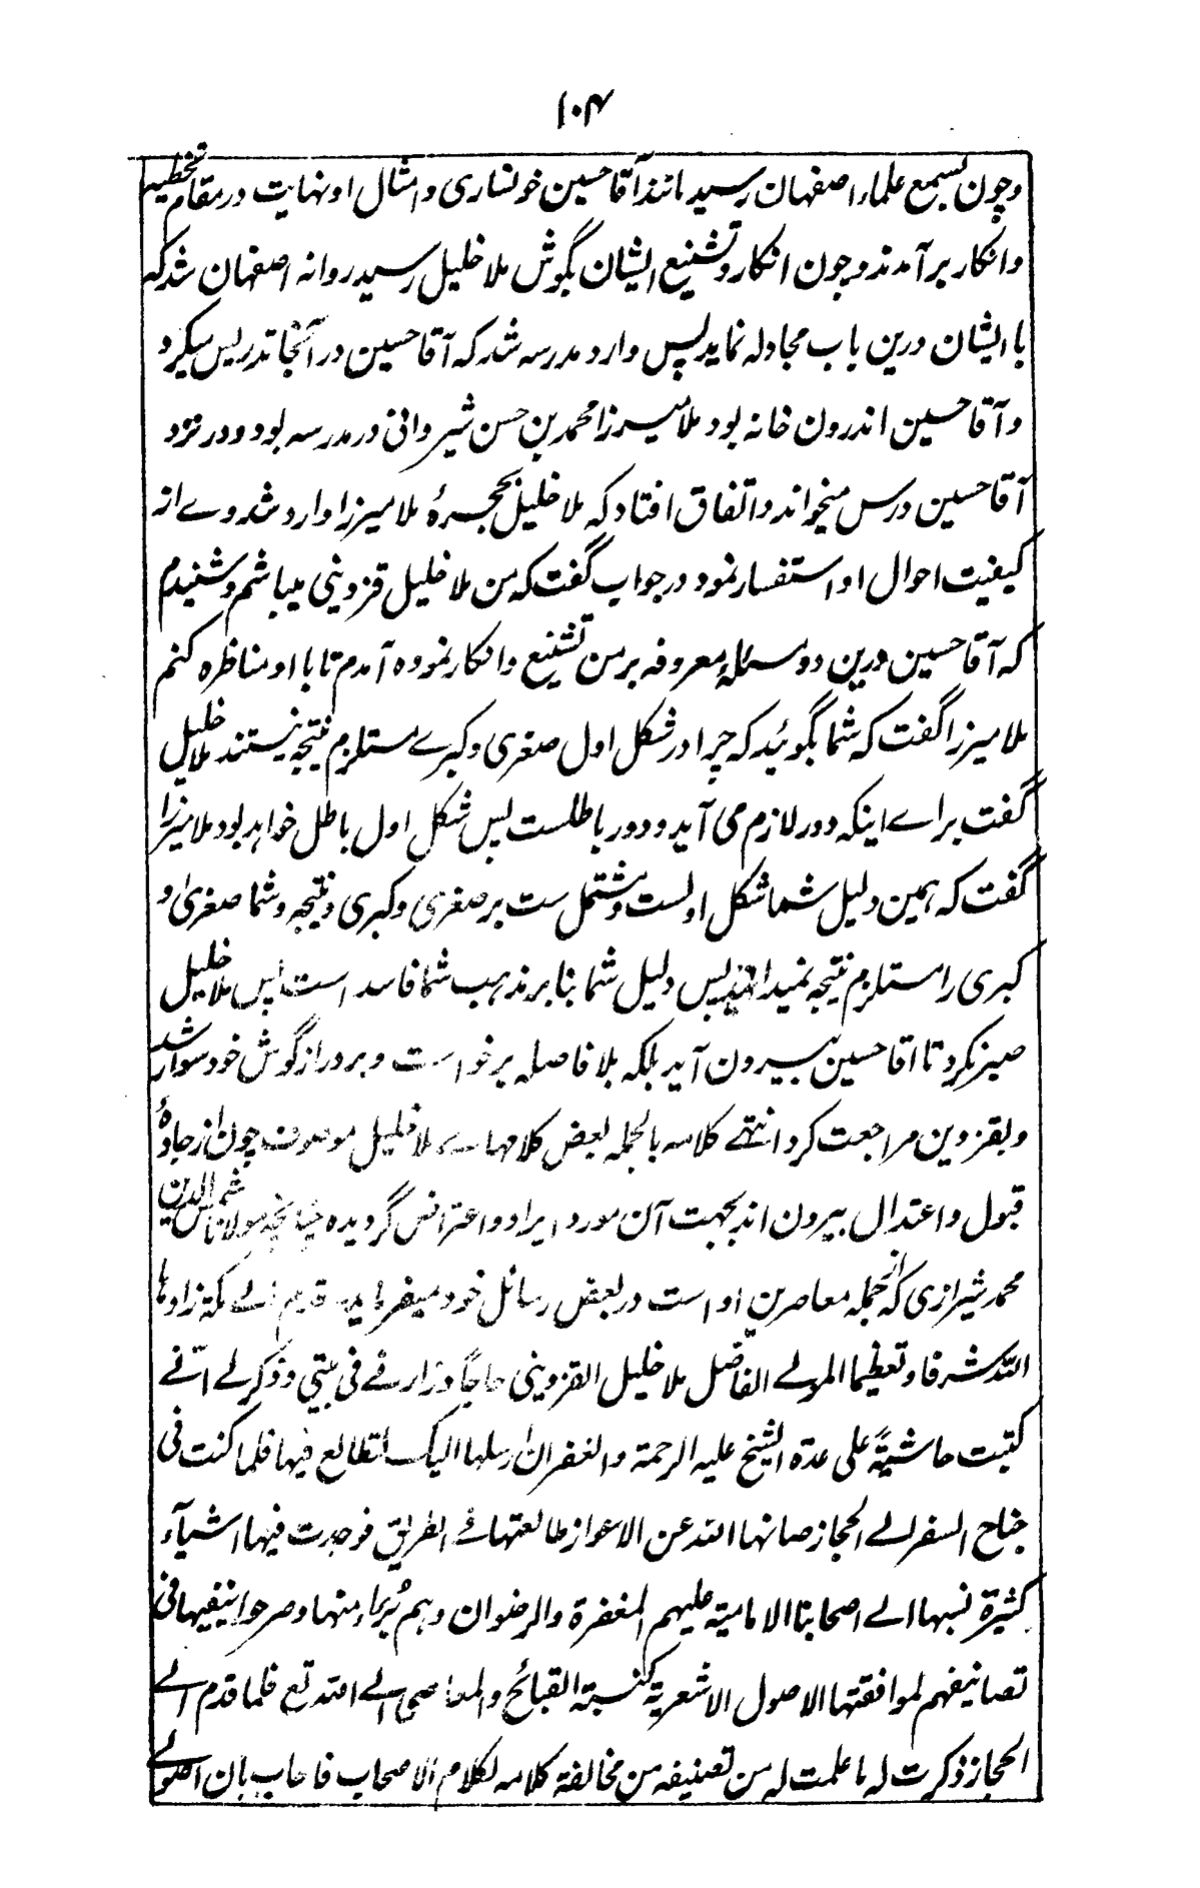 ۱۰۴
وچون بسمع علماء اصفهان رسید مانند آقا حسین خونساری و امثال او نهایت در مقام تخطیه
و انکار برآمدند و چون انکار و تشنیع ایشان بگوش ملا خلیل رسید روانه اصفهان شد که
با ایشان درین باب مجادله نماید پس وارد مدرسه شد که آقا حسین در آنجا تدریس میکرد
و آقا حسین اندرون خانه بود ملا میرزا محمد بن حسن شیروانی در مدرسه بود و در نزد
آقا حسین درس میخواند و اتفاق افتاد که ملا خلیل بحجرهٔ ملا میرزا وارد شد وے از
کیفیت احوال او استفسار نمود در جواب گفت که من ملا خلیل قزوینی میباشم و شنیدم
که آقا حسین درین دو مسئلۀ معروفه بر من تشنیع و انکار نموده آمدم تا با او مناظره کنم
ملا میرزا گفت که شما بگوئید که چرا در شکل اول صغری و کبرے مستلزم نتیجه نیستند ملا خلیل
گفت براے اینکه دور لازم می آید و دور باطلست پس شکل اول باطل خواہد بود ملا میرزا
گفت که ہمین دلیل شما شکل اولست و مشتمل ست بر صغری و کبری و نتیجه و شما صغریٰ و
کبری را مستلزم نتیجه نمیدانید پس دلیل شما بنا بر مذہب شما فاسد است پس ملا خلیل
صبر نکرد تا اقا حسین بیرون آید بلکه بلا فاصله برخواست و بر دراز گوش خود سوار شد
و بقزوین مراجعت کرد انتہے کلامه بالجمله بعض کلامہاے ملا خلیل موصوف چون از جادۂ
قبول و اعتدال بیرون اند بجهت آن مورد ایراد و اعتراض گردیده چنانچه مولانا شمس الدین
محمد شیرازی که از جمله معاصرین او است در بعض رسائل خود میفرماید قدم الے مکة زادها
الله شرفا و تعظیما المولے الفاضل ملا خلیل القزوینی حاجًا و زارنے فی بیتی و ذکر لے انّے
کتبت حاشیةً علی عدة الشیخ علیه الرحمة و الغفران ارسلها الیک لتطالع فیها فلما کنت فی
جناح السفر الے الحجاز صانها الله عن الاعواز طالعتها فے الطریق فوجدت فیها اشیآء
کثیرة نسبها الے اصحابنا الامامیة علیهم المغفرة و الرضوان و هم بُرَءاء منها و صرحوا بنفیها فی
تصانیفهم لموافقتها الاصول الاشعریة کنسبة القبائح و المعاصی الے الله تع فلما قدم الے
الحجاز ذکرت له ما علمت له من تصنیفه من مخالفة کلامه لکلام الاصحاب فاجاب بان